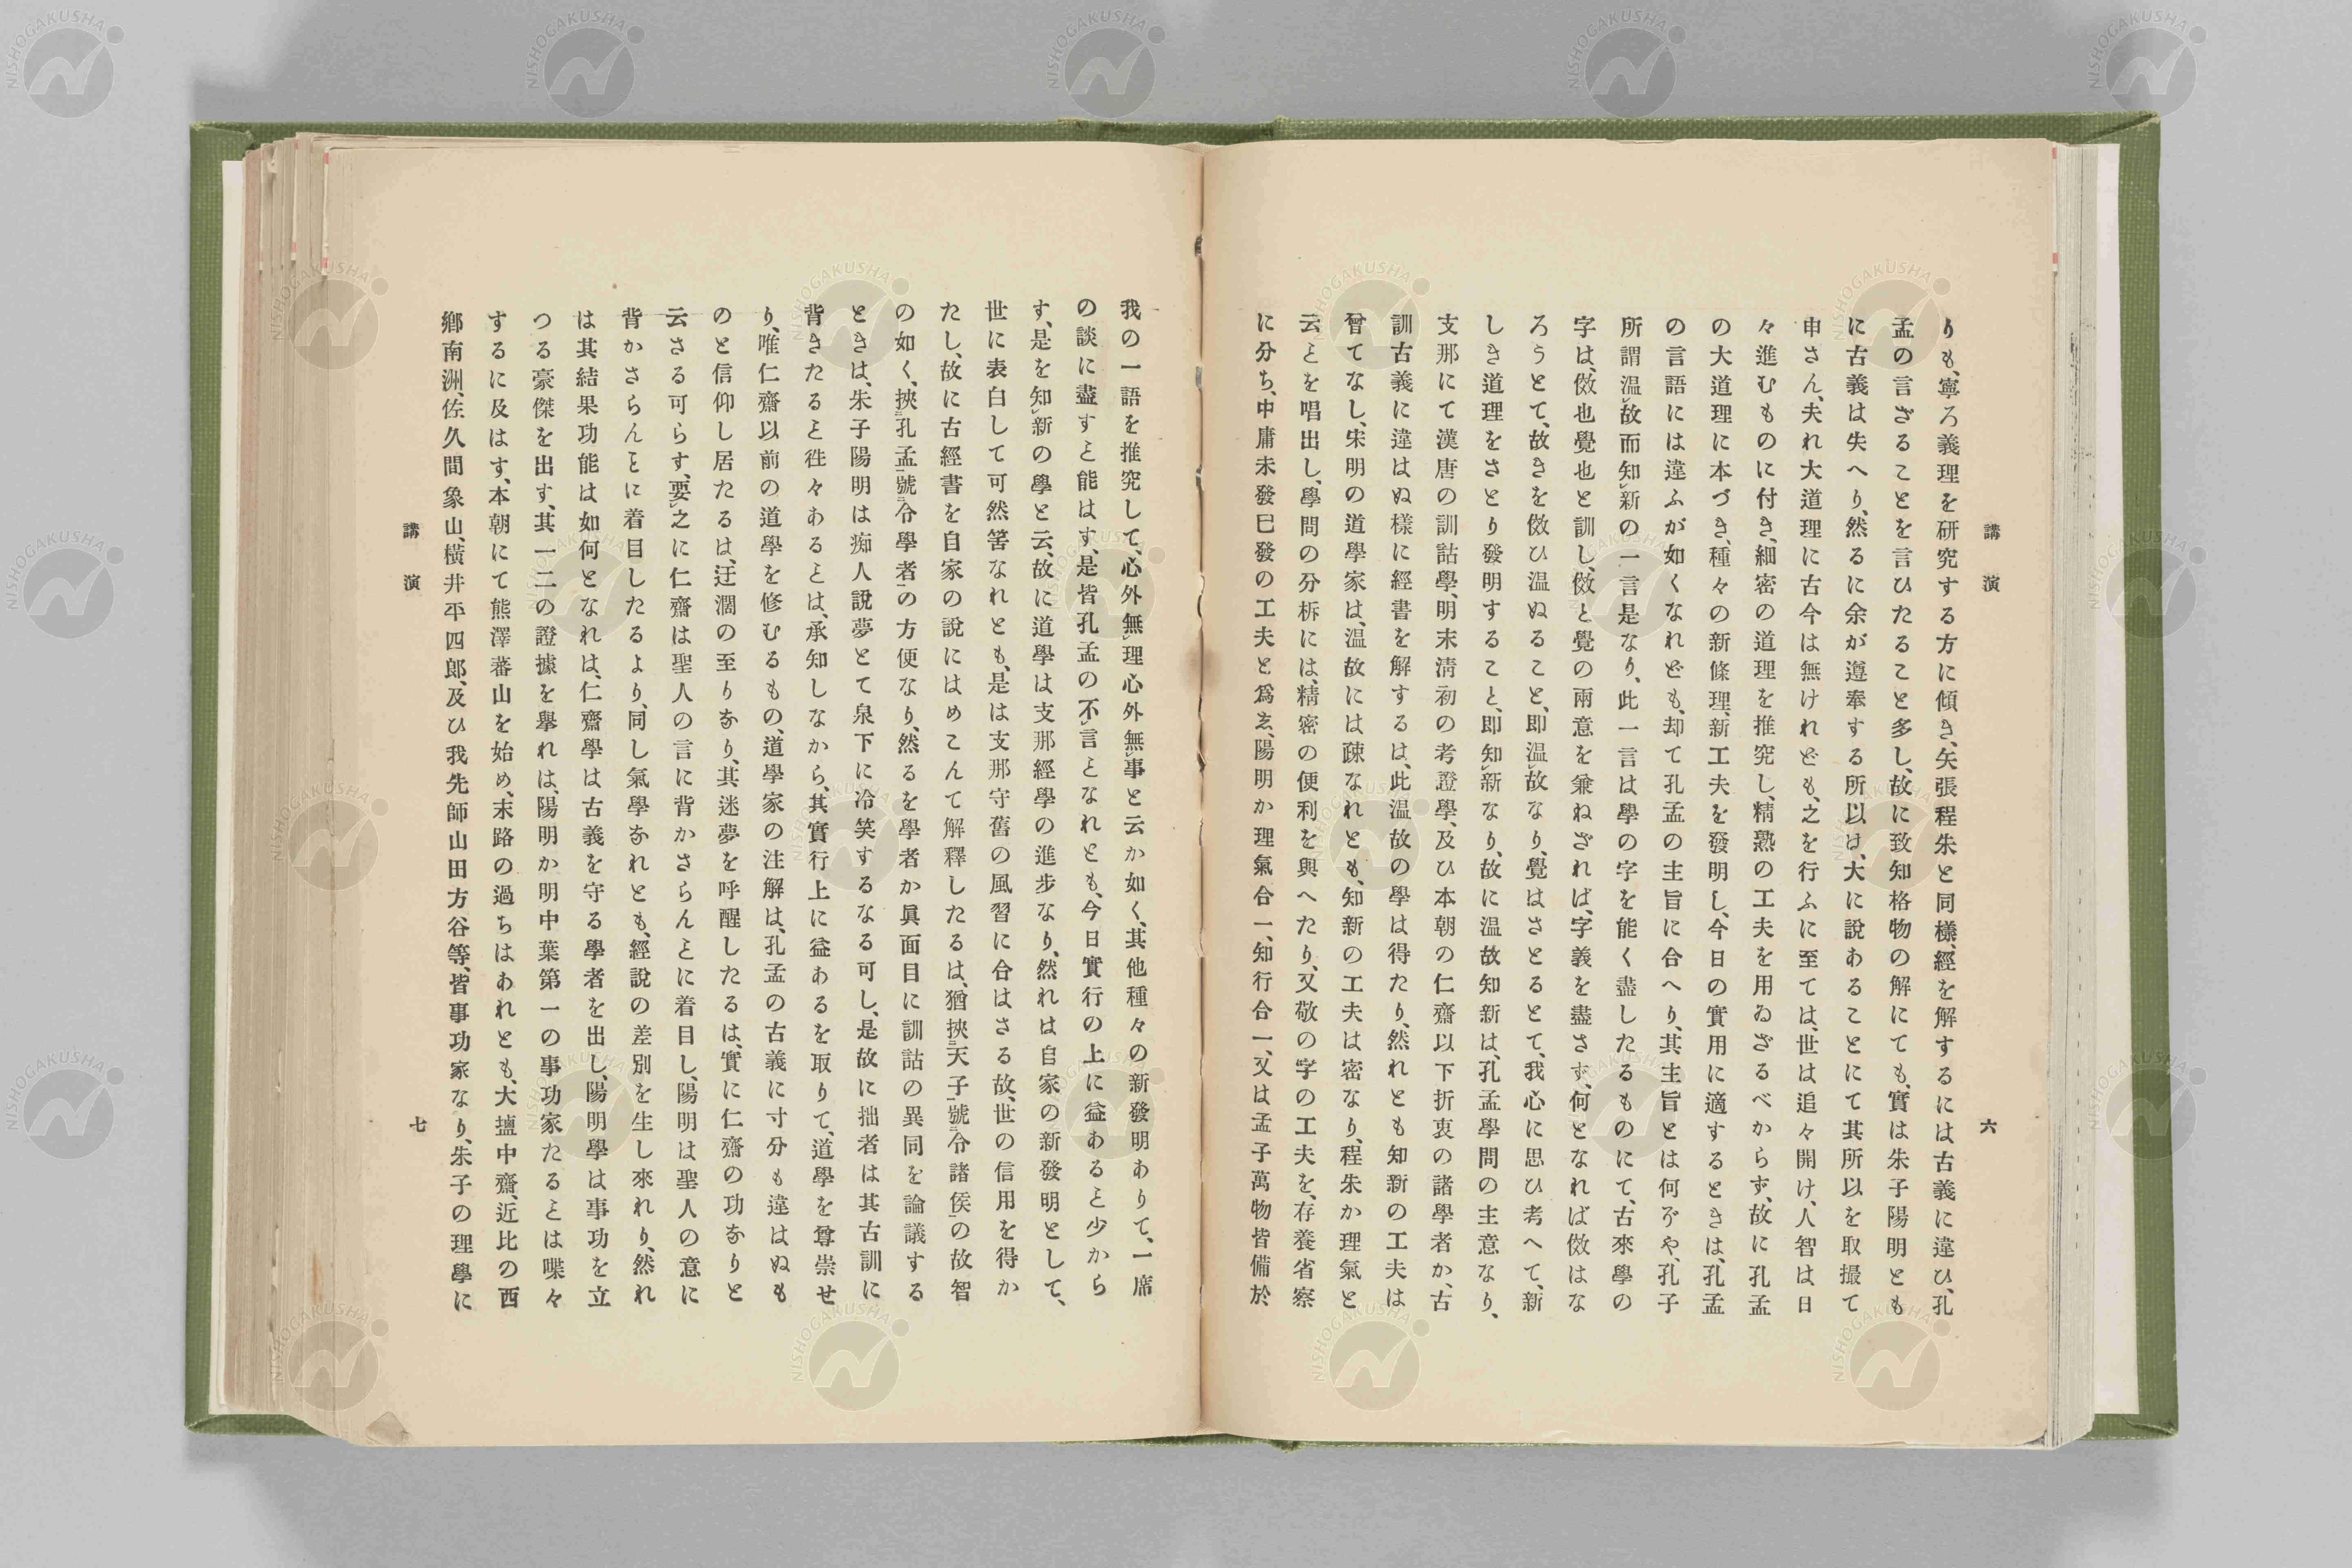 講演
六
りも、寧ろ義理を研究する方に傾き、矢張程朱と同樣、經を解するには古義に違ひ、孔
孟の言ざることを言ひたること多し、故に致知格物の解にても、實は朱子陽明とも
に古義は失へり、然るに余が遵奉する所以は、大に說あることにて其所以を取撮て
申さん、夫れ大道理に古今は無けれども、之を行ふに至ては、世は追々開け、人智は日
々進むものに付き、細密の道理を推究し、精熟の工夫を用ゐざるべからず、故に孔孟
の大道理に本づき、種々の新條理、新工夫を發明し、今日の實用に適するときは、孔孟
の言語には違ふが如くなれども、却て孔孟の主旨に合へり、其主旨とは何ぞや、孔子
所謂溫レ故而知レ新の一言是なり、此一言は學の字を能く盡したるものにて、古來學の
字は、傚也覺也と訓し、傚と覺の兩意を兼ねざれば、字義を盡さす、何となれば傚はな
ろうとて、故きを傚ひ溫ぬること、即溫レ故なり、覺はさとるとて、我心に思ひ考へて、新
しき道理をさとり發明すること、即知レ新なり、故に溫故知新は、孔孟學問の主意なり、
支那にて漢唐の訓詁學、明末淸初の考證學、及ひ本朝の仁齋以下折衷の諸學者か、古
訓古義に違はぬ樣に經書を解するは、此溫故の學は得たり、然れとも知新の工夫は
曾てなし、宋明の道學家は、溫故には疎なれとも、知新の工夫は密なり、程朱か理氣と
云ヿを唱出し、學問の分柝には、精密の便利を與へたり、又敬の字の工夫を、存養省察
に分ち、中庸未發已發の工夫と爲ゑ、陽明か理氣合一、知行合一、又は孟子萬物皆備於
我の一語を推究して、心外無レ理心外無レ事と云か如く、其他種々の新發明ありて、一席
の談に盡すヿ能はす、是皆孔孟の不レ言ヿなれとも、今日實行の上に益あるヿ少から
す、是を知レ新の學と云、故に道學は支那經學の進步なり、然れは自家の新發明として、
世に表白して可然筈なれとも、是は支那守舊の風習に合は、さる故、世の信用を得か
たし、故に古經書を自家の說にはめこんて解釋したるは、猶挾二天子一號二令諸侯一の故智
の如く、挾二孔孟一號二令學者一の方便なり、然るを學者か眞面目に訓詁の異同を論議する
ときは、朱子陽明は痴人說夢とて泉下に冷笑するなる可し、是故に拙者は其古訓に
背きたるヿ徃々あるヿは、承知しなから、其實行上に益あるを取りて、道學を尊崇せ
り、唯仁齋以前の道學を修むるもの、道學家の注解は、孔孟の古義に寸分も違はぬも
のと信仰し居たるは、迂濶の至りなり、其迷夢を呼醒したるは、實に仁齋の功なりと
云さる可らす、要レ之に仁齋は聖人の言に背かさらんヿに着目し、陽明は聖人の意に
背かさらんヿに着目したるより、同し氣學なれとも、經說の差別を生し來れり、然れ
は其結果功能は如何となれは、仁齋學は古義を守る學者を出し、陽明學は事功を立
つる豪傑を出す、其一二の證據を擧れは、陽明か明中葉第一の事功家たるヿは喋々
するに及はす、本朝にて熊澤蕃山を始め、末路の過ちはあれとも、大塩中齋、近比の西
鄕南洲、佐久間象山、橫井平四郞、及ひ我先師山田方谷等、皆事功家なり、朱子の理學に
講演
七